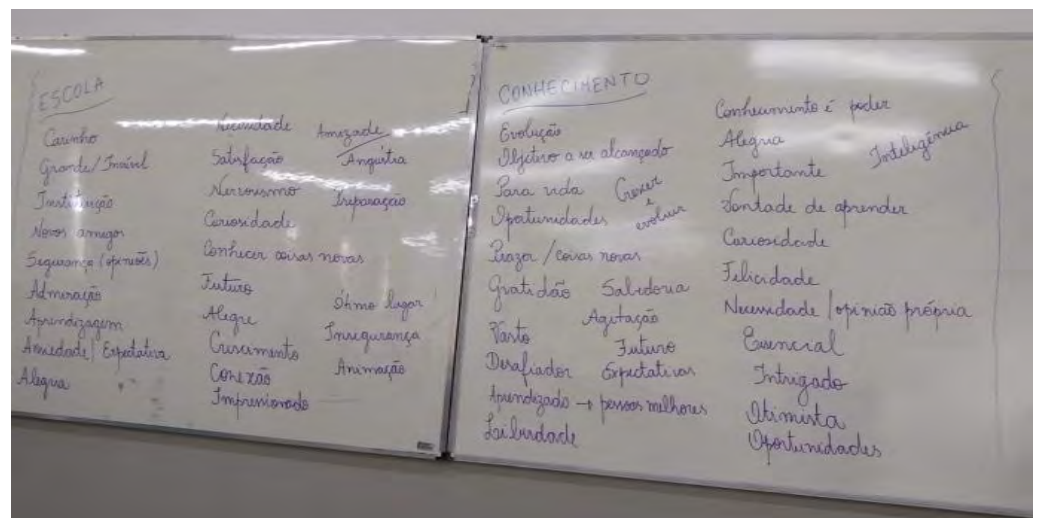 ESCOLA
Carinho
Grande/Incrível
Instituição
Novos amigos
Segurança (opiniões)
Admiração
Aprendizagem
Ansiedade/Expectativa
Alegria
Necessidade
Satisfação
Nervosismo
Curiosidade
Conhecer coisas novas
Futuro
Alegre
Crescimento
Conexão
Impressionado
Amizade
Angústia
Preparação
Ótimo lugar
Insegurança
Animação
CONHECIMENTO
Evolução
Objetivo a ser alcançado
Para vida
Oportunidades
Crescer
e
evoluir
Prazer/coisas novas
Gratidão
Sabedoria
Agitação
Vasto
Futuro
Desafiador
Expectativas
Aprendizado → pessoas melhores
Liberdade
Conhecimento é poder
Alegria
Inteligência
Importante
Vontade de aprender
Curiosidade
Felicidade
Necessidade/opinião própria
Essencial
Intrigado
Otimista
Oportunidades